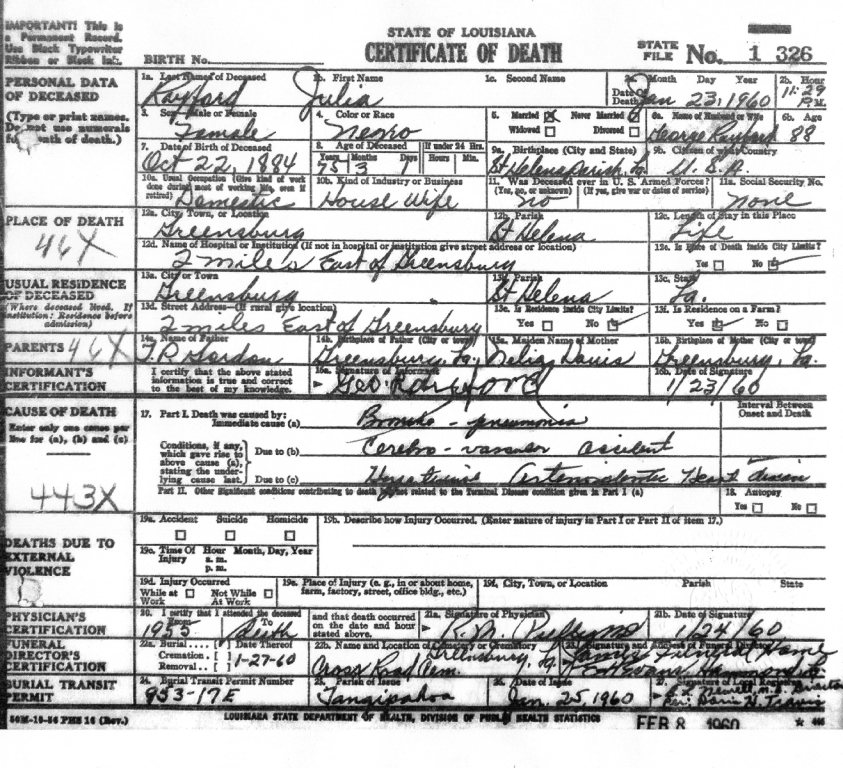 IMPORTANT! This is
a Permanent Record.
Use Black Typewriter
Ribbon or Black Ink.
STATE OF LOUISIANA
CERTIFICATE OF DEATH
BIRTH No.
STATE FILE No. 1 326
PERSONAL DATA OF DECEASED
(Type or print names. Do not use numerals for month of death.)
1a. Last Name of Deceased Rayford
1b. First Name Julia
1c. Second Name
2a. Date of Death Month Day Year Jan 23, 1960
2b. Hour 11:29 P.M.
3. Sex Male or Female Female
4. Color or Race Negro
5. Married Never Married Widowed Divorced
6a. Name of Husband or Wife George Rayford
6b. Age 88
7. Date of Birth of Deceased Oct 22, 1884
8. Age of Deceased Years Months Days 75 3 1
If under 24 Hrs. Hours Min.
9a. Birthplace (City and State) St Helena Parish, La.
9b. Citizen of what Country U.S.A.
10a. Usual Occupation (Give kind of work done during most of working life, even if retired) Domestic
10b. Kind of Industry or Business House Wife
11. Was Deceased ever in U. S. Armed Forces? (Yes, no, or unknown) (If yes, give war or dates of service) no
11a. Social Security No. none
PLACE OF DEATH
46X
12a. City, Town, or Location Greensburg
12b. Parish St Helena
12c. Length of Stay in this Place Life
12d. Name of Hospital or Institution (If not in hospital or institution give street address or location) 2 miles East of Greensburg
12e. Is Place of Death inside City Limits? Yes No
USUAL RESIDENCE OF DECEASED
(Where deceased lived. If institution: Residence before admission)
13a. City or Town Greensburg
13b. Parish St Helena
13c. State La.
13d. Street Address—(If rural give location) 2 miles East of Greensburg
13e. Is Residence inside City Limits? Yes No
13f. Is Residence on a Farm? Yes No
PARENTS 46X
14a. Name of Father Gordon
14b. Birthplace of Father (City or town) Greensburg, La.
15a. Maiden Name of Mother Delia Davis
15b. Birthplace of Mother (City or town) Greensburg, La.
INFORMANT'S CERTIFICATION
I certify that the above stated information is true and correct to the best of my knowledge.
16a. Signature of Informant Geo.
16b. Date of Signature 1/23/60
CAUSE OF DEATH
Enter only one cause per line for (a), (b) and (c)
443X
17. Part I. Death was caused by:
Immediate cause (a) Broncho-pneumonia
Interval Between Onset and Death
Conditions, if any, which gave rise to above cause (a), stating the underlying cause last.
Due to (b) Cerebro-vascular accident
Due to (c) Hypertensive arteriosclerotic Heart disease
Part II. Other Significant conditions contributing to death but not related to the Terminal Disease condition given in Part I (a)
18. Autopsy Yes No
DEATHS DUE TO EXTERNAL VIOLENCE
19a. Accident Suicide Homicide
19b. Describe how Injury Occurred. (Enter nature of injury in Part I or Part II of item 17.)
19c. Time Of Injury Hour Month, Day, Year a. m. p. m.
19d. Injury Occurred While at Work Not While At Work
19e. Place of Injury (e. g., in or about home, farm, factory, street, office bldg., etc.)
19f. City, Town, or Location Parish State
PHYSICIAN'S CERTIFICATION
20. I certify that I attended the deceased From To 1955 Death
and that death occurred on the date and hour stated above.
21a. Signature of Physician
21b. Date of Signature 1/24/60
FUNERAL DIRECTOR'S CERTIFICATION
22a. Burial Cremation Removal Date Thereof 1-27-60
22b. Name and Location of Cemetery or Crematory Cross Road Cem. Greensburg, La.
23. Signature and Address of Funeral Director Funeral Home Hammond, La.
BURIAL TRANSIT PERMIT
24. Burial Transit Permit Number 953-17E
25. Parish of Issue Tangipahoa
26. Date of Issue Jan. 25, 1960
Signature of Local Registrar Director
50M-10-56 PHS 16 (Rev.)
LOUISIANA STATE DEPARTMENT OF HEALTH, DIVISION OF PUBLIC HEALTH STATISTICS
FEB 8 1960